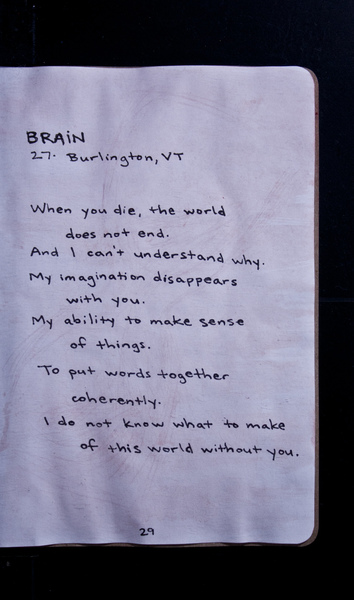 BRAIN
27. Burlington, VT
When you die, the world
does not end.
And I can't understand why.
My imagination disappears
with you.
My ability to make sense
of things.
To put words together
coherently.
I do not know what to make
of this world without you.
29